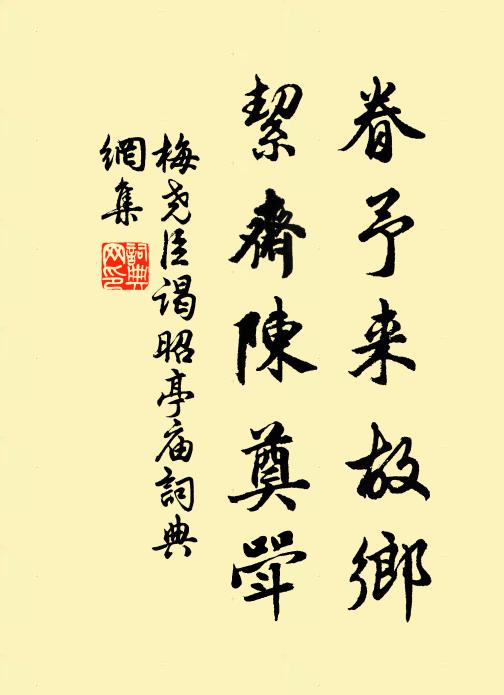 眷予来故鄉
絜齋陳奠斝
梅尧臣謁昭亭庙詞典
網集
詞典网印